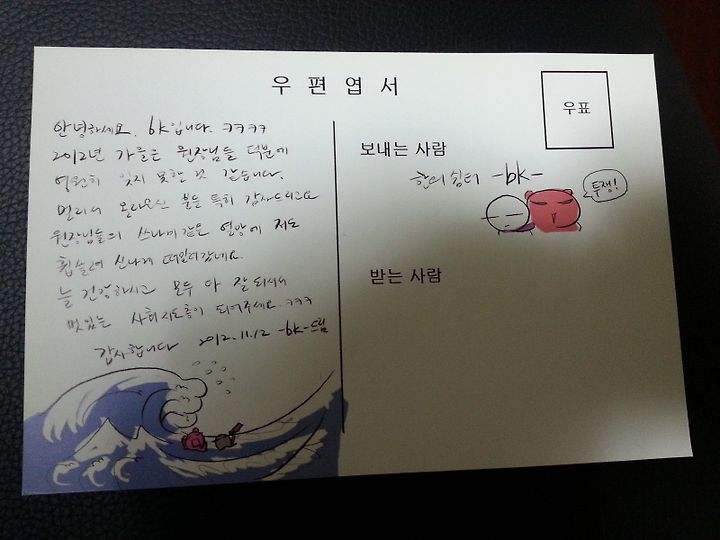 우편엽서
우표
안녕하세요. bk입니다. ㅋㅋㅋㅋ
2012년 가을은 원장님들 덕분에
영원히 잊지 못할 것 같습니다.
멀리서 올라오신 분들 특히 감사드리고요
원장님들의 쓰나미같은 열망에 저도
휩쓸려 신나게 떠밀려갔네요.
늘 건강하시고 모두 다 잘 되셔서
멋있는 사회지도층이 되어주세요. ㅋㅋㅋ
감사합니다 2012.11.12 -bk-드림
보내는 사람
한의쉼터 -bk-
투쟁!
받는 사람